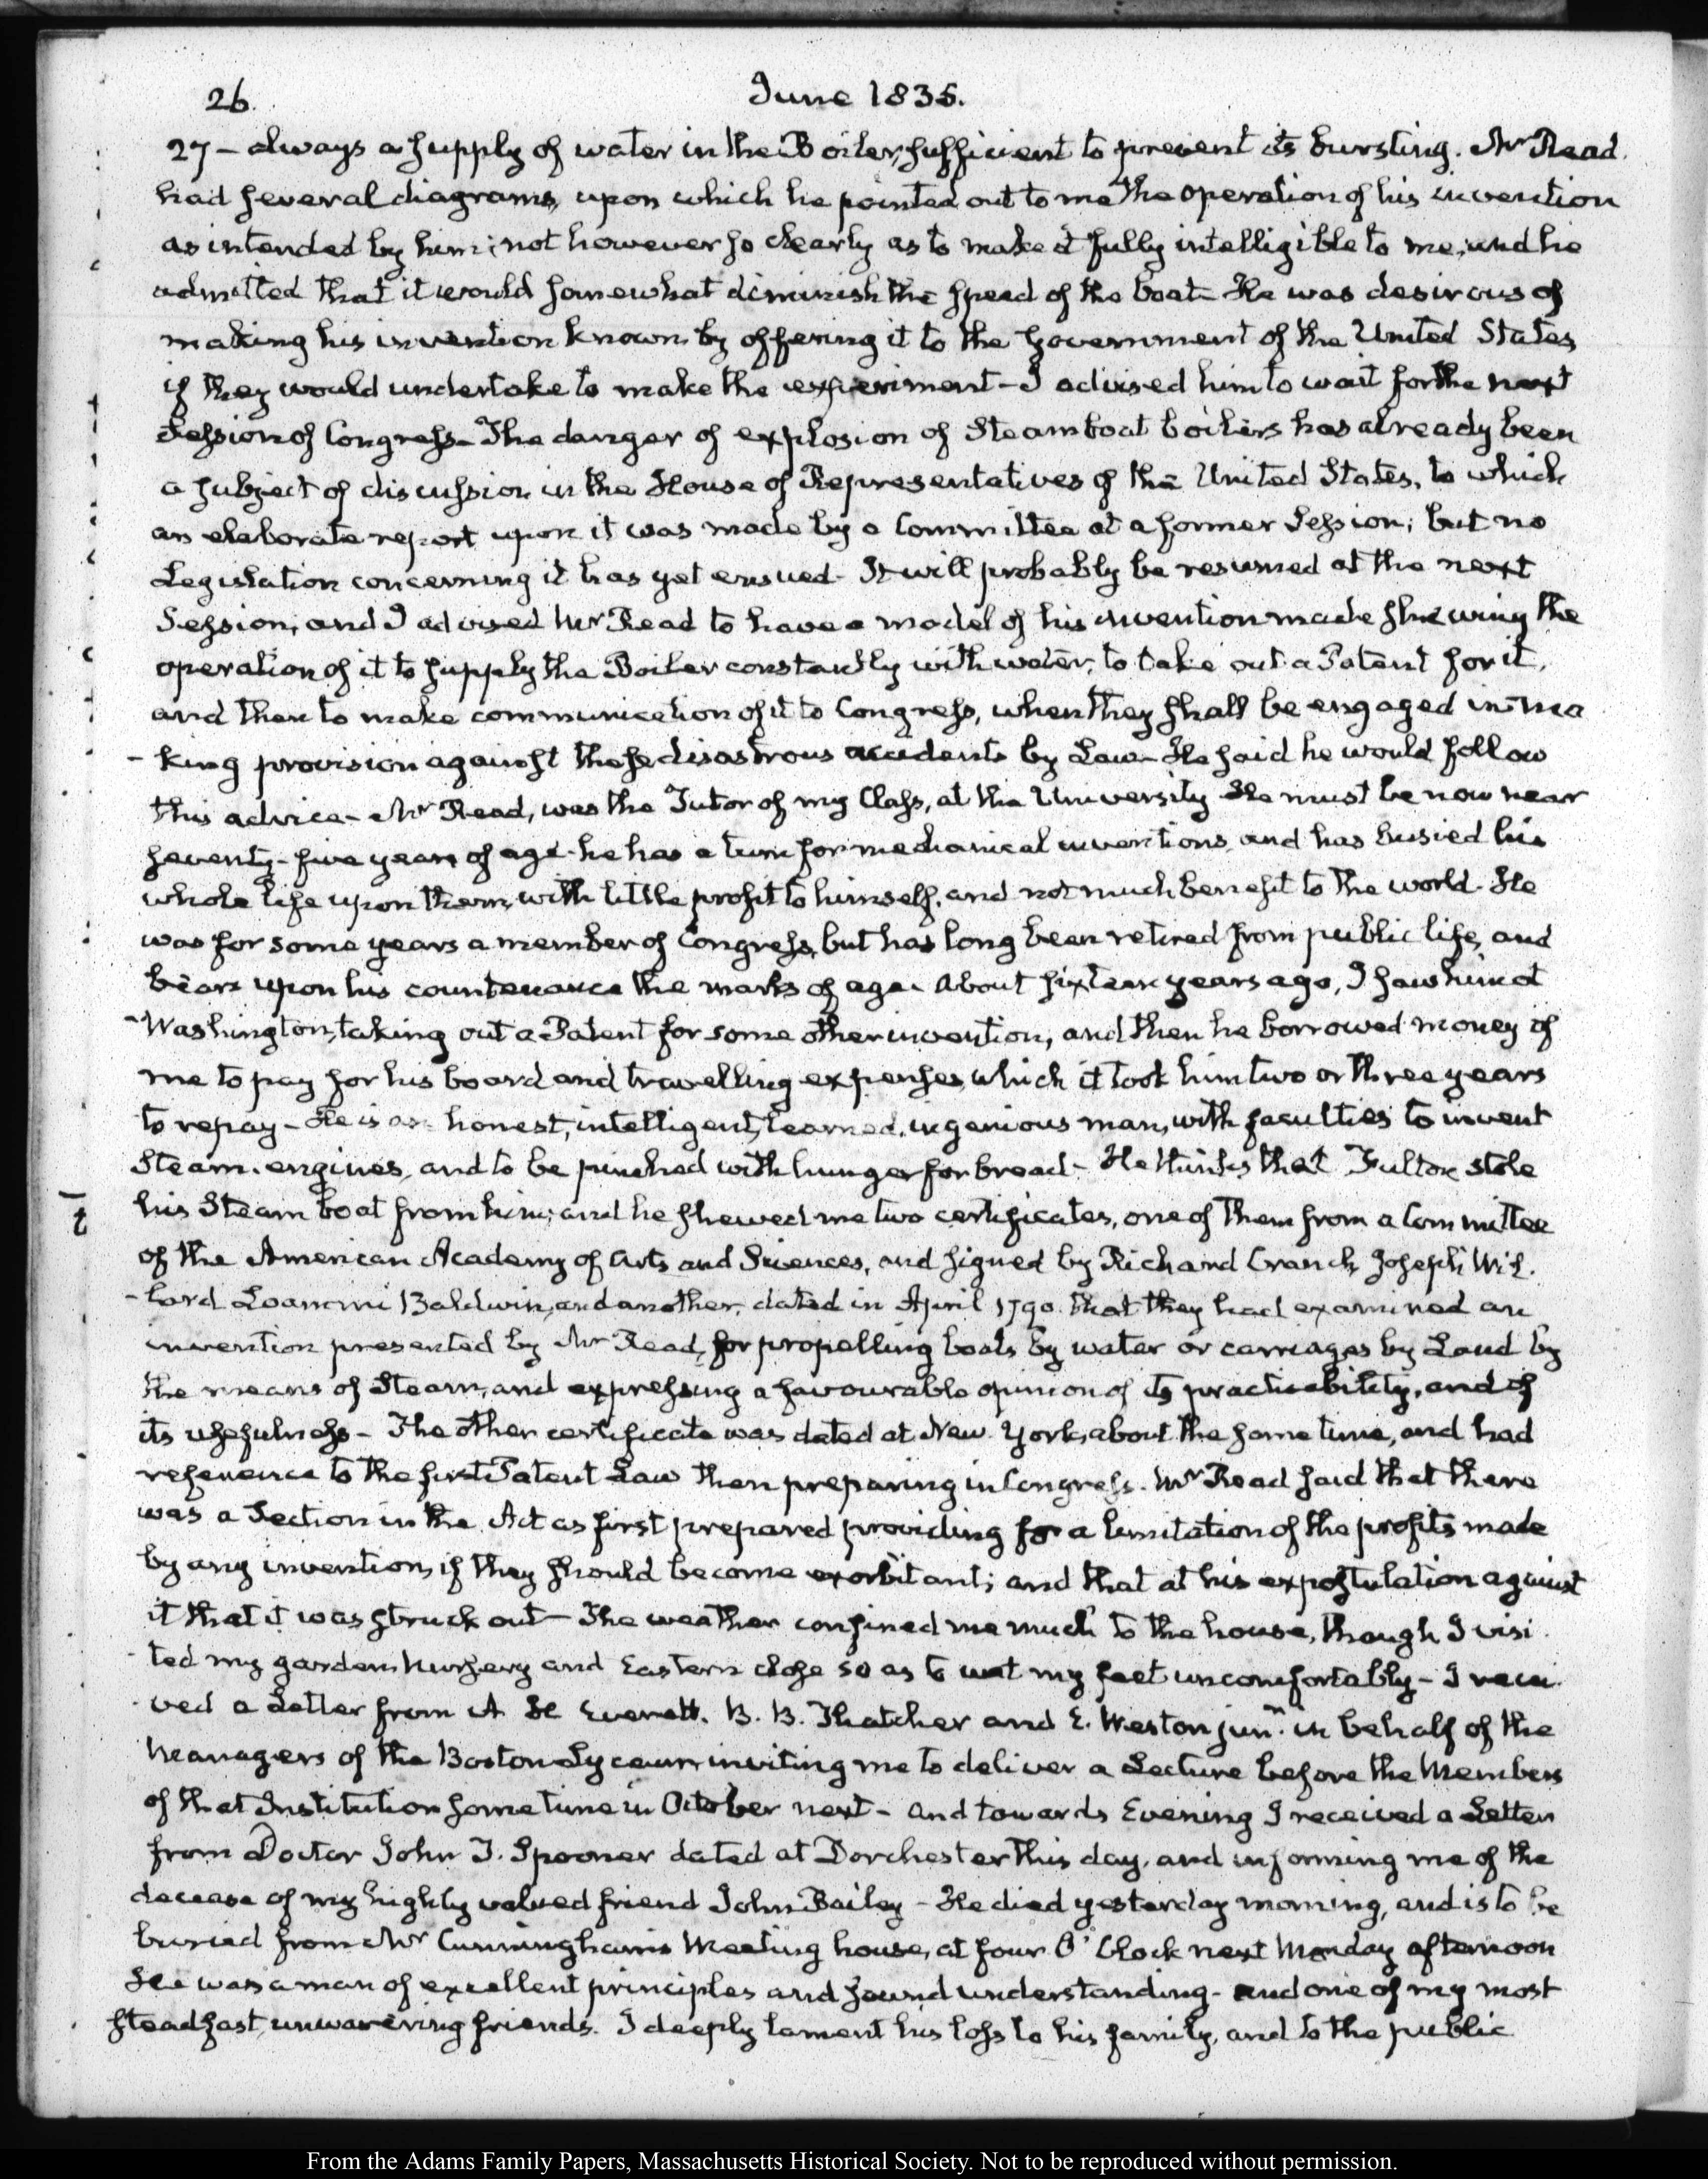 26.
June 1835.
27 – always a supply of water in the Boiler, sufficient to prevent its bursting. Mr Read
had several diagrams, upon which he pointed out to me the operation of his invention
as intended by him; not however so clearly as to make it fully intelligible to me, and he
admitted that it would somewhat diminish the speed of the boat – He was desirous of
making his invention known by offering it to the Government of the United States
if they would undertake to make the experiment – I advised him to wait for the next
Session of Congress – The danger of explosion of Steam boat boilers has already been
a subject of discussion in the House of Representatives of the United States, to which
an elaborate report upon it was made by a Committee at a former Session; but no
Legislation concerning it has yet ensued – It will probably be resumed at the next
Session, and I advised Mr Read to have a model of his invention made shewing the
operation of it to supply the Boiler constantly with water, to take out a Patent for it,
and then to make communication of it to Congress, when they shall be engaged in ma
-king provision against these disastrous accidents by Law – He said he would follow
this advice – Mr Read, was the Tutor of my Class, at the University He must be now near
seventy-five years of age – he has a turn for mechanical inventions, and has busied his
whole life upon them, with little profit to himself, and not much benefit to the world – He
was for some years a member of Congress, but has long been retired from public life, and
bears upon his countenance the marks of age. About sixteen years ago, I saw him at
Washington, taking out a Patent for some other invention, and then he borrowed money of
me to pay for his board and travelling expenses, which it took him two or three years
to repay – He is an honest, intelligent, learned, ingenious man, with faculties to invent
Steam-engines, and to be pinched with hunger for bread – He thinks that Fulton stole
his Steam boat from him; and he shewed me two certificates, one of them from a Committee
of the American Academy of Arts and Sciences, and signed by Richard Cranch, Joseph Wil
-lard Loammi Baldwin, and another, dated in April 1790. that they had examined an
invention presented by Mr Read, for propelling boats by water or carriages by Land by
the means of Steam, and expressing a favourable opinion of its practicability, and of
its usefulness – The other certificate was dated at New York, about the same time, and had
reference to the first Patent Law then preparing in Congress. Mr Read said that there
was a Section in the Act as first prepared providing for a limitation of the profits made
by any invention, if they should become exorbitant; and that at his expostulation against
it that it was struck out – The weather confined me much to the house, though I visi
-ted my garden, nursery and Eastern close so as to wet my feet uncomfortably – I recei
-ved a Letter from A H Everett. B. B. Thatcher and E. Weston junr. in behalf of the
Managers of the Boston Lyceum inviting me to deliver a Lecture before the Members
of that Institution some time in October next – and towards Evening I received a Letter
from Doctor John J. Spooner dated at Dorchester this day, and informing me of the
decease of my highly valued friend John Bailey – He died yesterday morning, and is to be
buried from Mr Cunningham's Meeting house, at four O'Clock next Monday afternoon
He was a man of excellent principles and sound understanding – and one of my most
steadfast, unwavering friends. I deeply lament his loss to his family, and to the public
From the Adams Family Papers, Massachusetts Historical Society. Not to be reproduced without permission.